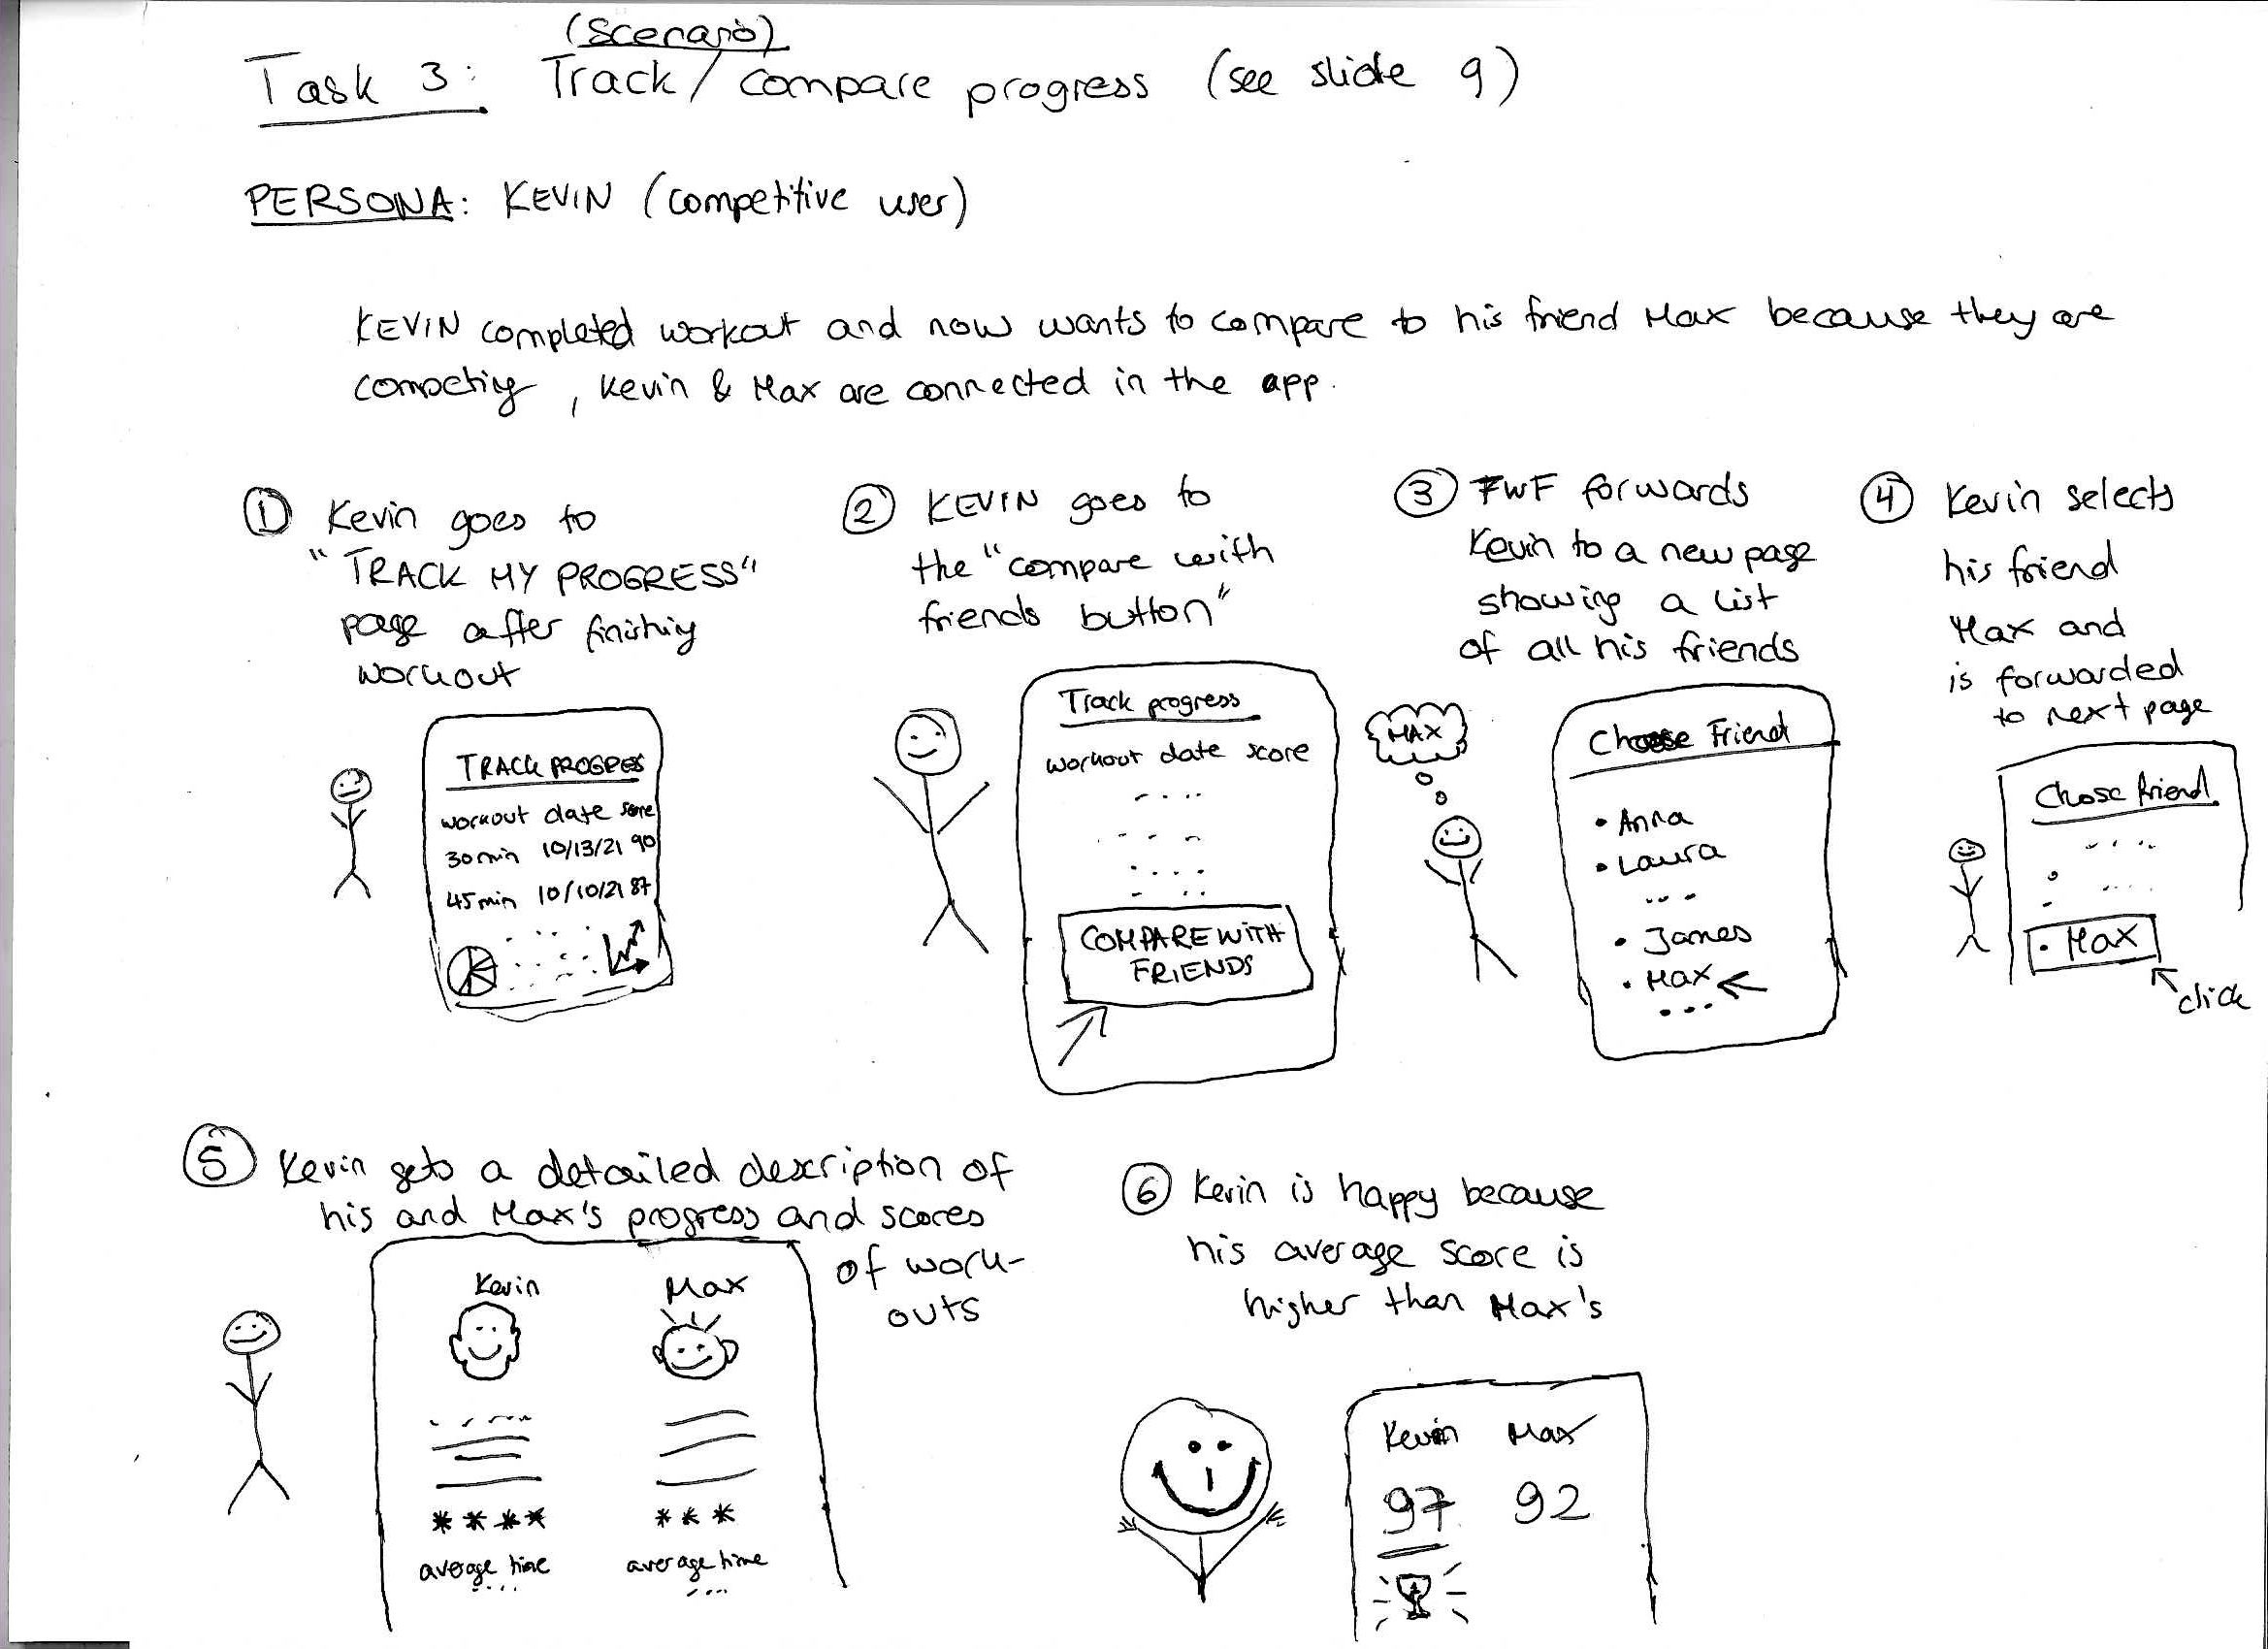 (Scenario)
Task 3: Track / compare progress (see slide 9)
PERSONA: KEVIN (competitive user)
KEVIN completed workout and now wants to compare to his friend Max because they are
competing, Kevin & Max are connected in the app.
① Kevin goes to
"TRACK MY PROGRESS"
page after finishing
workout
TRACK PROGRES
workout date score
30 min 10/13/21 90
45 min 10/10/21 87
② KEVIN goes to
the "compare with
friends button"
Track progress
workout date score
COMPARE WITH
FRIENDS
③ FWF forwards
Kevin to a new page
showing a list
of all his friends
MAX
Choose Friend
• Anna
• Laura
...
• James
• Max
...
④ Kevin selects
his friend
Max and
is forwarded
to next page
Chose friend
• Max
click
⑤ Kevin gets a detailed description of
his and Max's progress and scores
of work-
outs
Kevin Max
**** ***
average time average time
.... ...
⑥ Kevin is happy because
his average score is
higher than Max's
Kevin Max
97 92